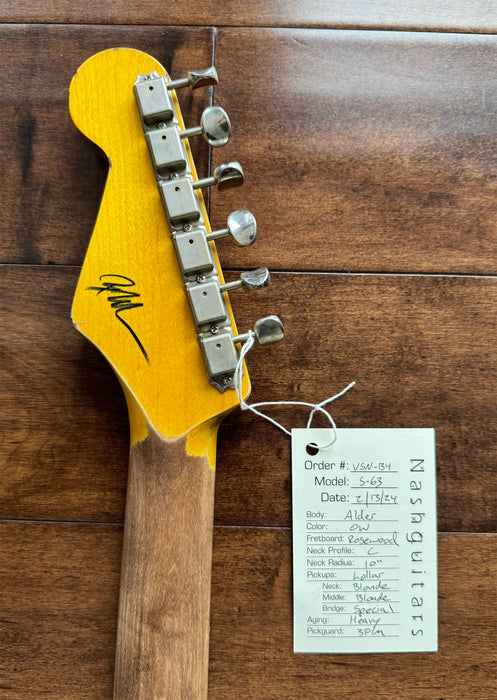 Nashguitars
Order #: VSN-B4
Model: S-63
Date: 2/13/24
Body: Alder
Color: OW
Fretboard: Rosewood
Neck Profile: C
Neck Radius: 10"
Pickups: Lollar
Neck: Blonde
Middle: Blonde
Bridge: Special
Aging: Heavy
Pickguard: 3Pm